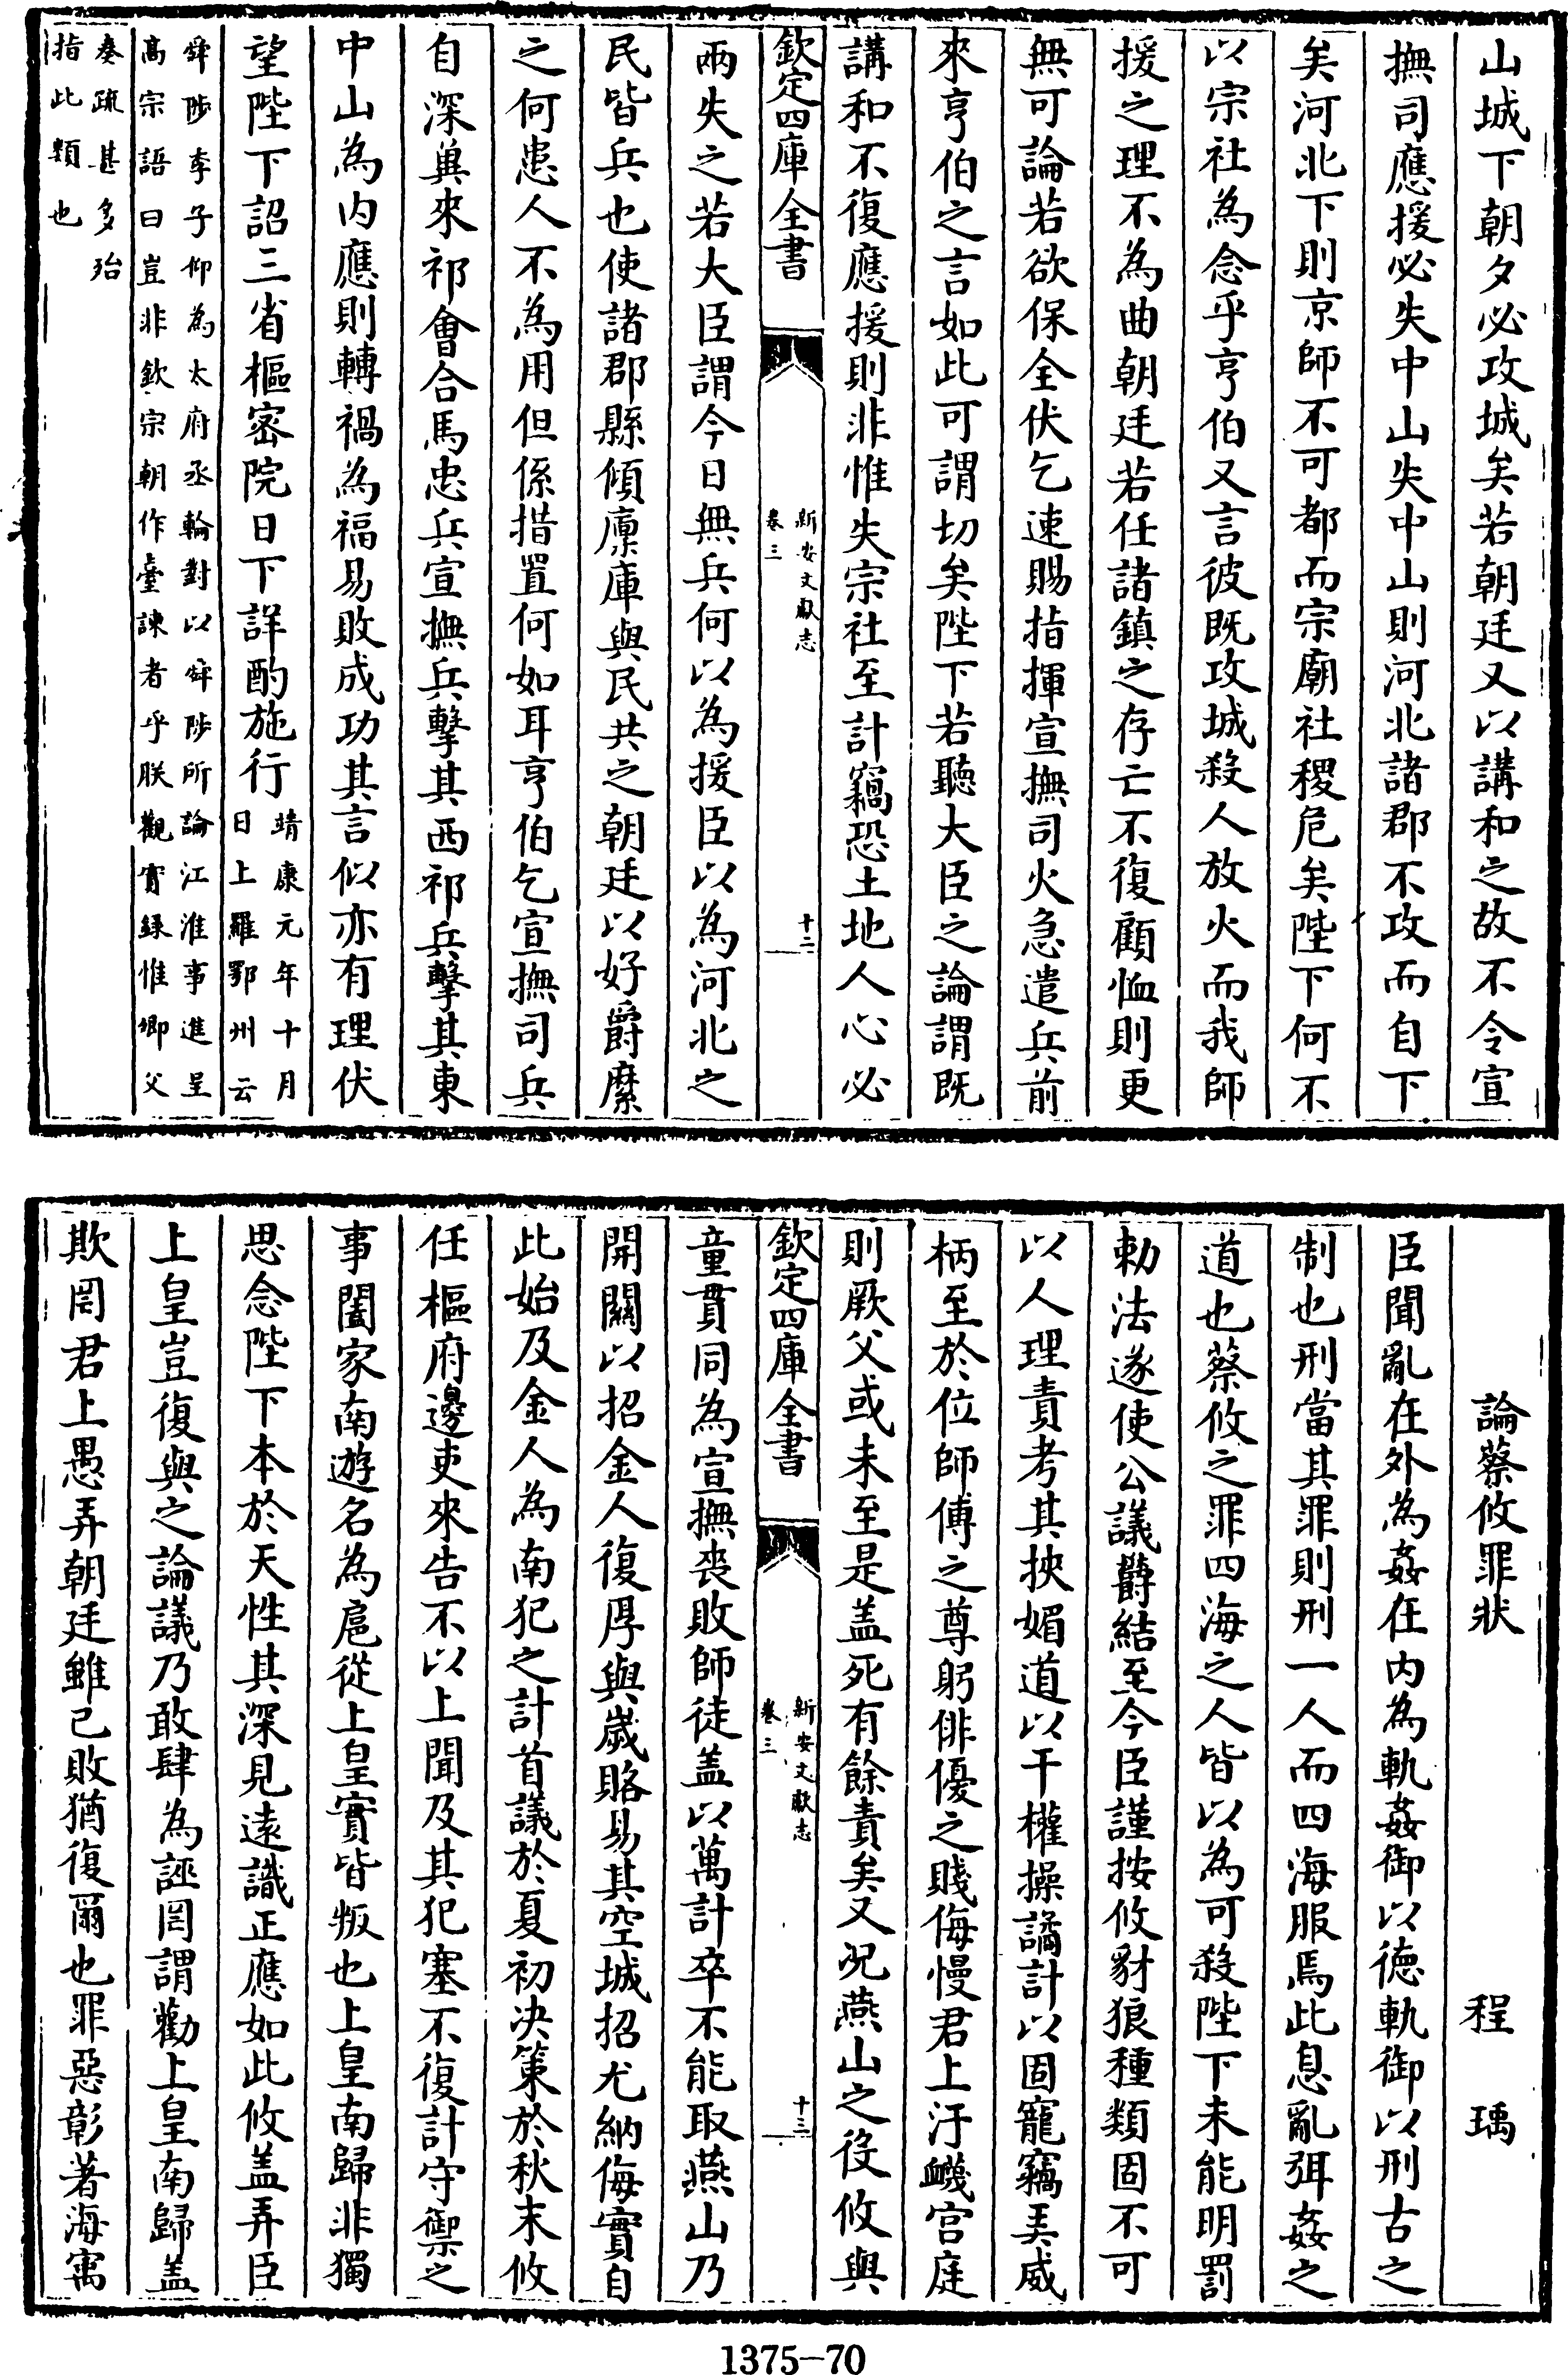 山城下朝夕必攻城矣若朝廷又以講和之故不令宣
撫司應援必失中山失中山則河北諸郡不攻而自下
矣河北下則京師不可都而宗廟社稷危矣陛下何不
以宗社為念乎亨伯又言彼既攻城殺人放火而我師
援之理不為曲朝廷若任諸鎮之存亡不復顧恤則更
無可論若欲保全伏乞速賜指揮宣撫司火急遣兵前
來亨伯之言如此可謂切矣陛下若聽大臣之論謂既
講和不復應援則非惟失宗社至計竊恐土地人心必
欽定四庫全書
新安文獻志
卷三
十二
兩失之若大臣謂今日無兵何以為援臣以為河北之
民皆兵也使諸郡縣傾廪庫與民共之朝廷以好爵縻
之何患人不為用但係措置何如耳亨伯乞宣撫司兵
自深冀來祁會合馬忠兵宣撫兵擊其西祁兵擊其東
中山為内應則轉禍為福易敗成功其言似亦有理伏
望陛下詔三省樞密院日下詳酌施行
靖康元年十月
日上羅鄂州云
舜陟李子仰為太府丞輪對以舜陟所論江淮事進呈
高宗語曰豈非欽宗朝作臺諫者乎朕觀實録惟卿父
奏疏甚多殆
指此類也
論蔡攸罪狀 程瑀
臣聞亂在外為姦在内為軌姦御以徳軌御以刑古之
制也刑當其罪則刑一人而四海服焉此息亂弭姦之
道也蔡攸之罪四海之人皆以為可殺陛下未能明罰
勅法遂使公議欝結至今臣謹按攸豺狼種類固不可
以人理責考其挾媚道以干權操譎計以固寵竊弄威
柄至於位師傅之尊躬俳優之賤侮慢君上汙衊宫庭
則厥父或未至是盖死有餘責矣又况燕山之役攸與
欽定四庫全書
新安文獻志
卷三
十三
童貫同為宣撫喪敗師徒盖以萬計卒不能取燕山乃
開關以招金人復厚與嵗賂易其空城招尤納侮實自
此始及金人為南犯之計首議於夏初决策於秋末攸
任樞府邊吏來告不以上聞及其犯塞不復計守禦之
事闔家南遊名為扈從上皇實皆叛也上皇南歸非獨
思念陛下本於天性其深見逺識正應如此攸盖弄臣
上皇豈復與之論議乃敢肆為誣罔謂勸上皇南歸盖
欺罔君上愚弄朝廷雖已敗猶復爾也罪惡彰著海寓
1375-70